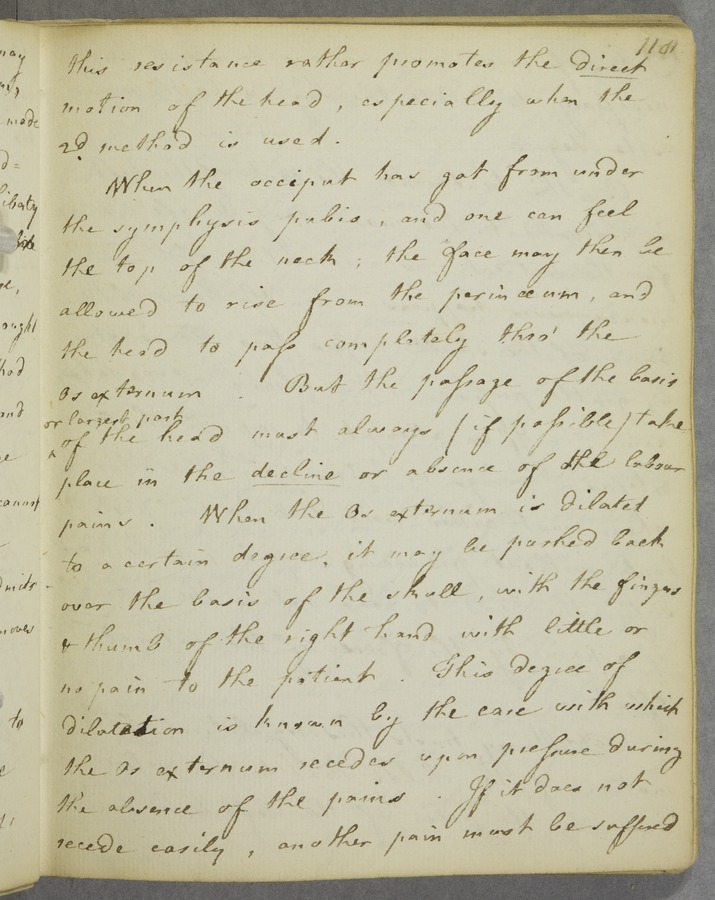 118
this resistance rather promotes the direct
motion of the head, especially when the
2d method is used.
When the occiput has got from under
the symphysis pubis, and one can feel
the top of the neck; the face may then be
allowed to rise from the perinæum, and
the head to pass completely thro' the
Os externum. But the passage of the basis
or largest part
of the head must always (if possible) take
place in the decline or absence of the labour
pains. When the Os externum is dilated
to a certain degree, it may be pushed back
over the basis of the skull, with the fingers
& thumb of the right hand with little or
no pain to the patient. This degree of
dilatation is known by the ease with which
the Os externum recedes upon pressure during
the absence of the pains. If it does not
recede easily, another pain must be suffered